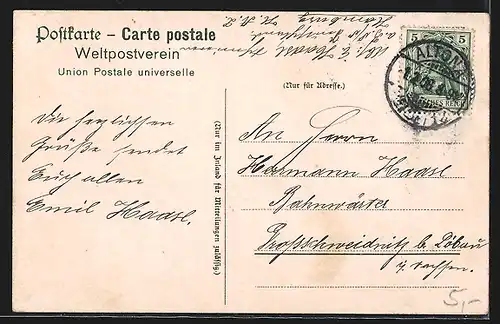 Postkarte – Carte postale
Weltpostverein
Union Postale universelle
Hamburg
(Nur für Adresse.)
5 5
ALTONA
Die herzlichen
Grüße sendet
Euch allen
Emil Haasl.
(Nur im Inland für Mitteilungen zulässig)
An Herrn
Hermann Haasl
Bahnwärter
Großschweidnitz b. Löbau
i. Sachsen.
5,-